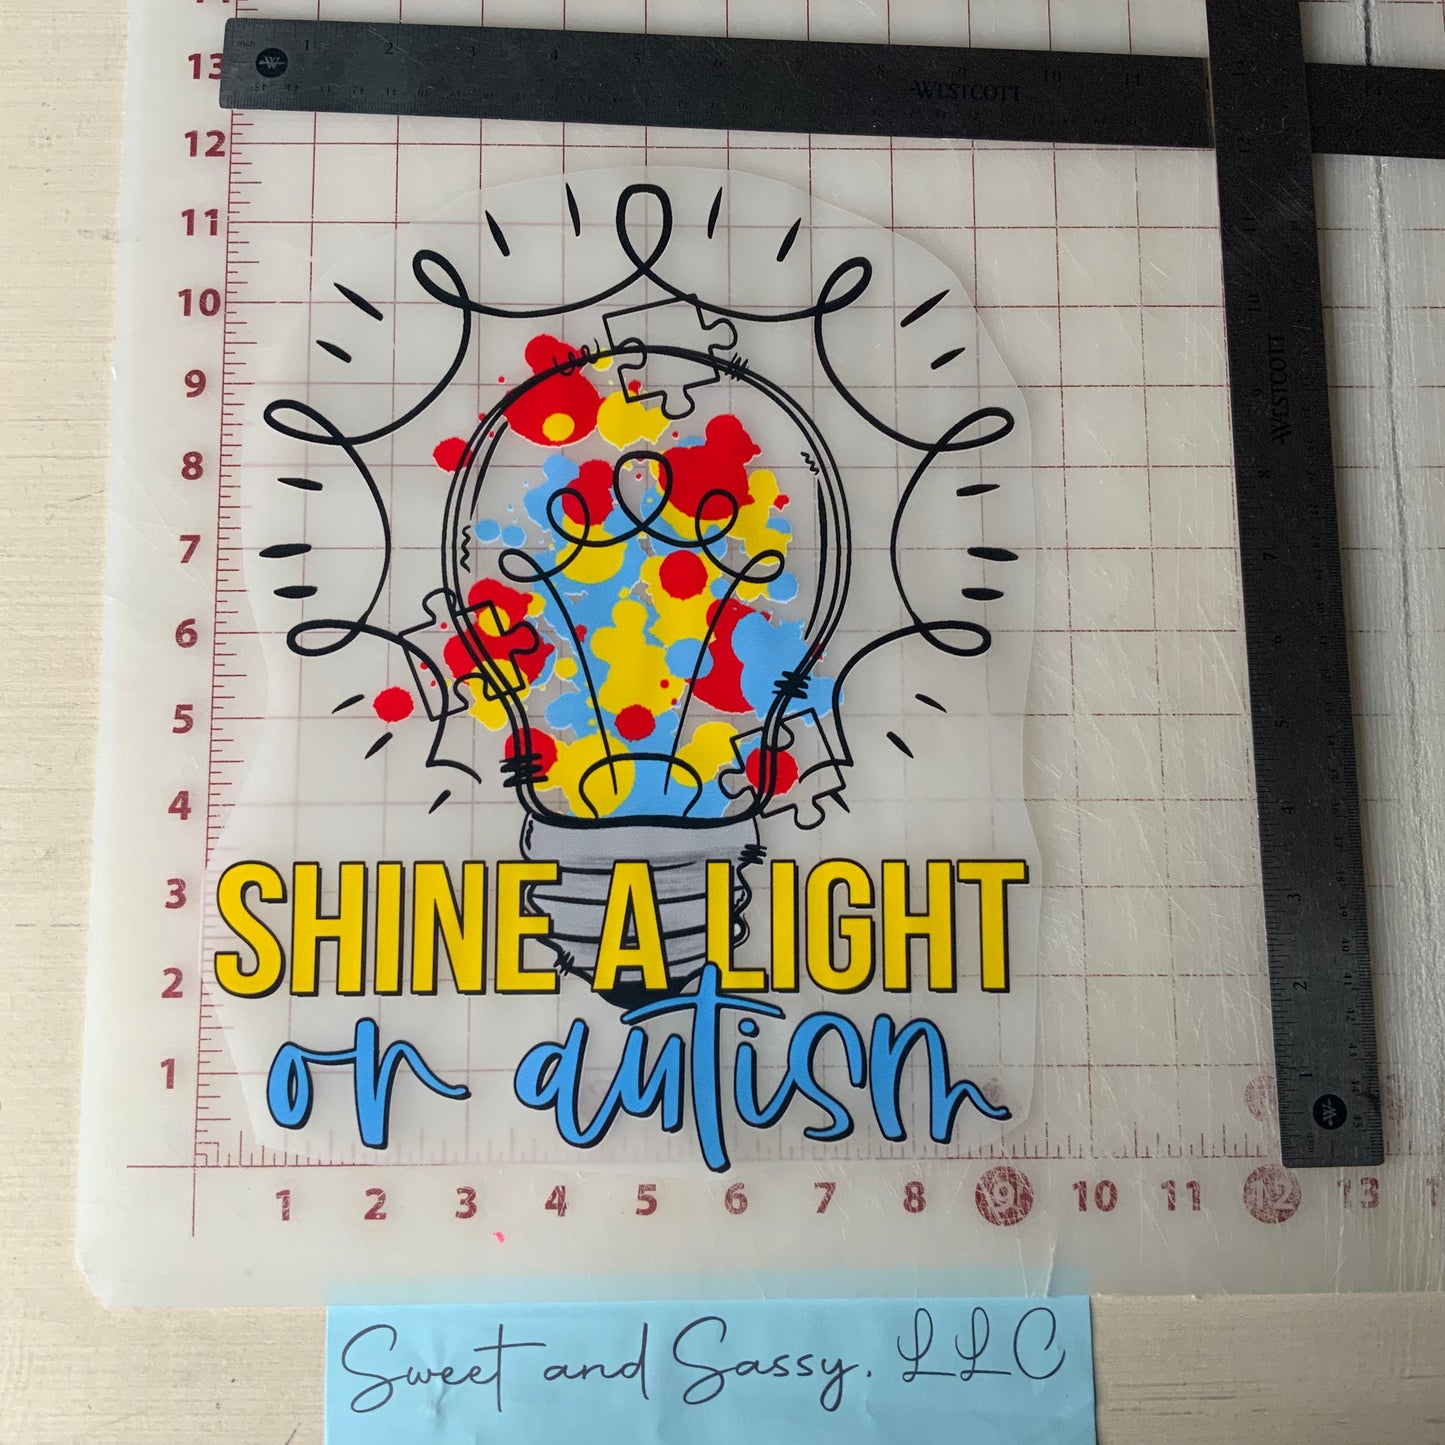 14
13
12
11
10
9
8
7
6
5
4
3
2
1
WESTCOTT
WESTCOTT
SHINE A LIGHT
on autism
1 2 3 4 5 6 7 8 9 10 11 12 13
Sweet and Sassy, LLC